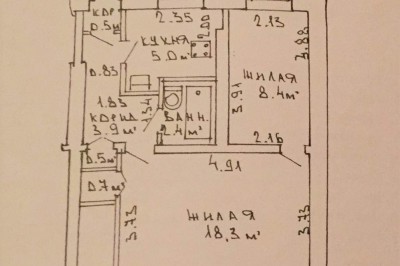 КДР
0.5м²
2.35
2.00
КУХНЯ
5.0м²
2.13
3.88
ЖИЛАЯ
8.4м²
3.91
0.83
1.83
1.34
КОРИД
3.9м²
ВАНН.
2.4м²
2.16
0.5м²
4.91
0.7м²
3.73
ЖИЛАЯ
18.3м²
3.73